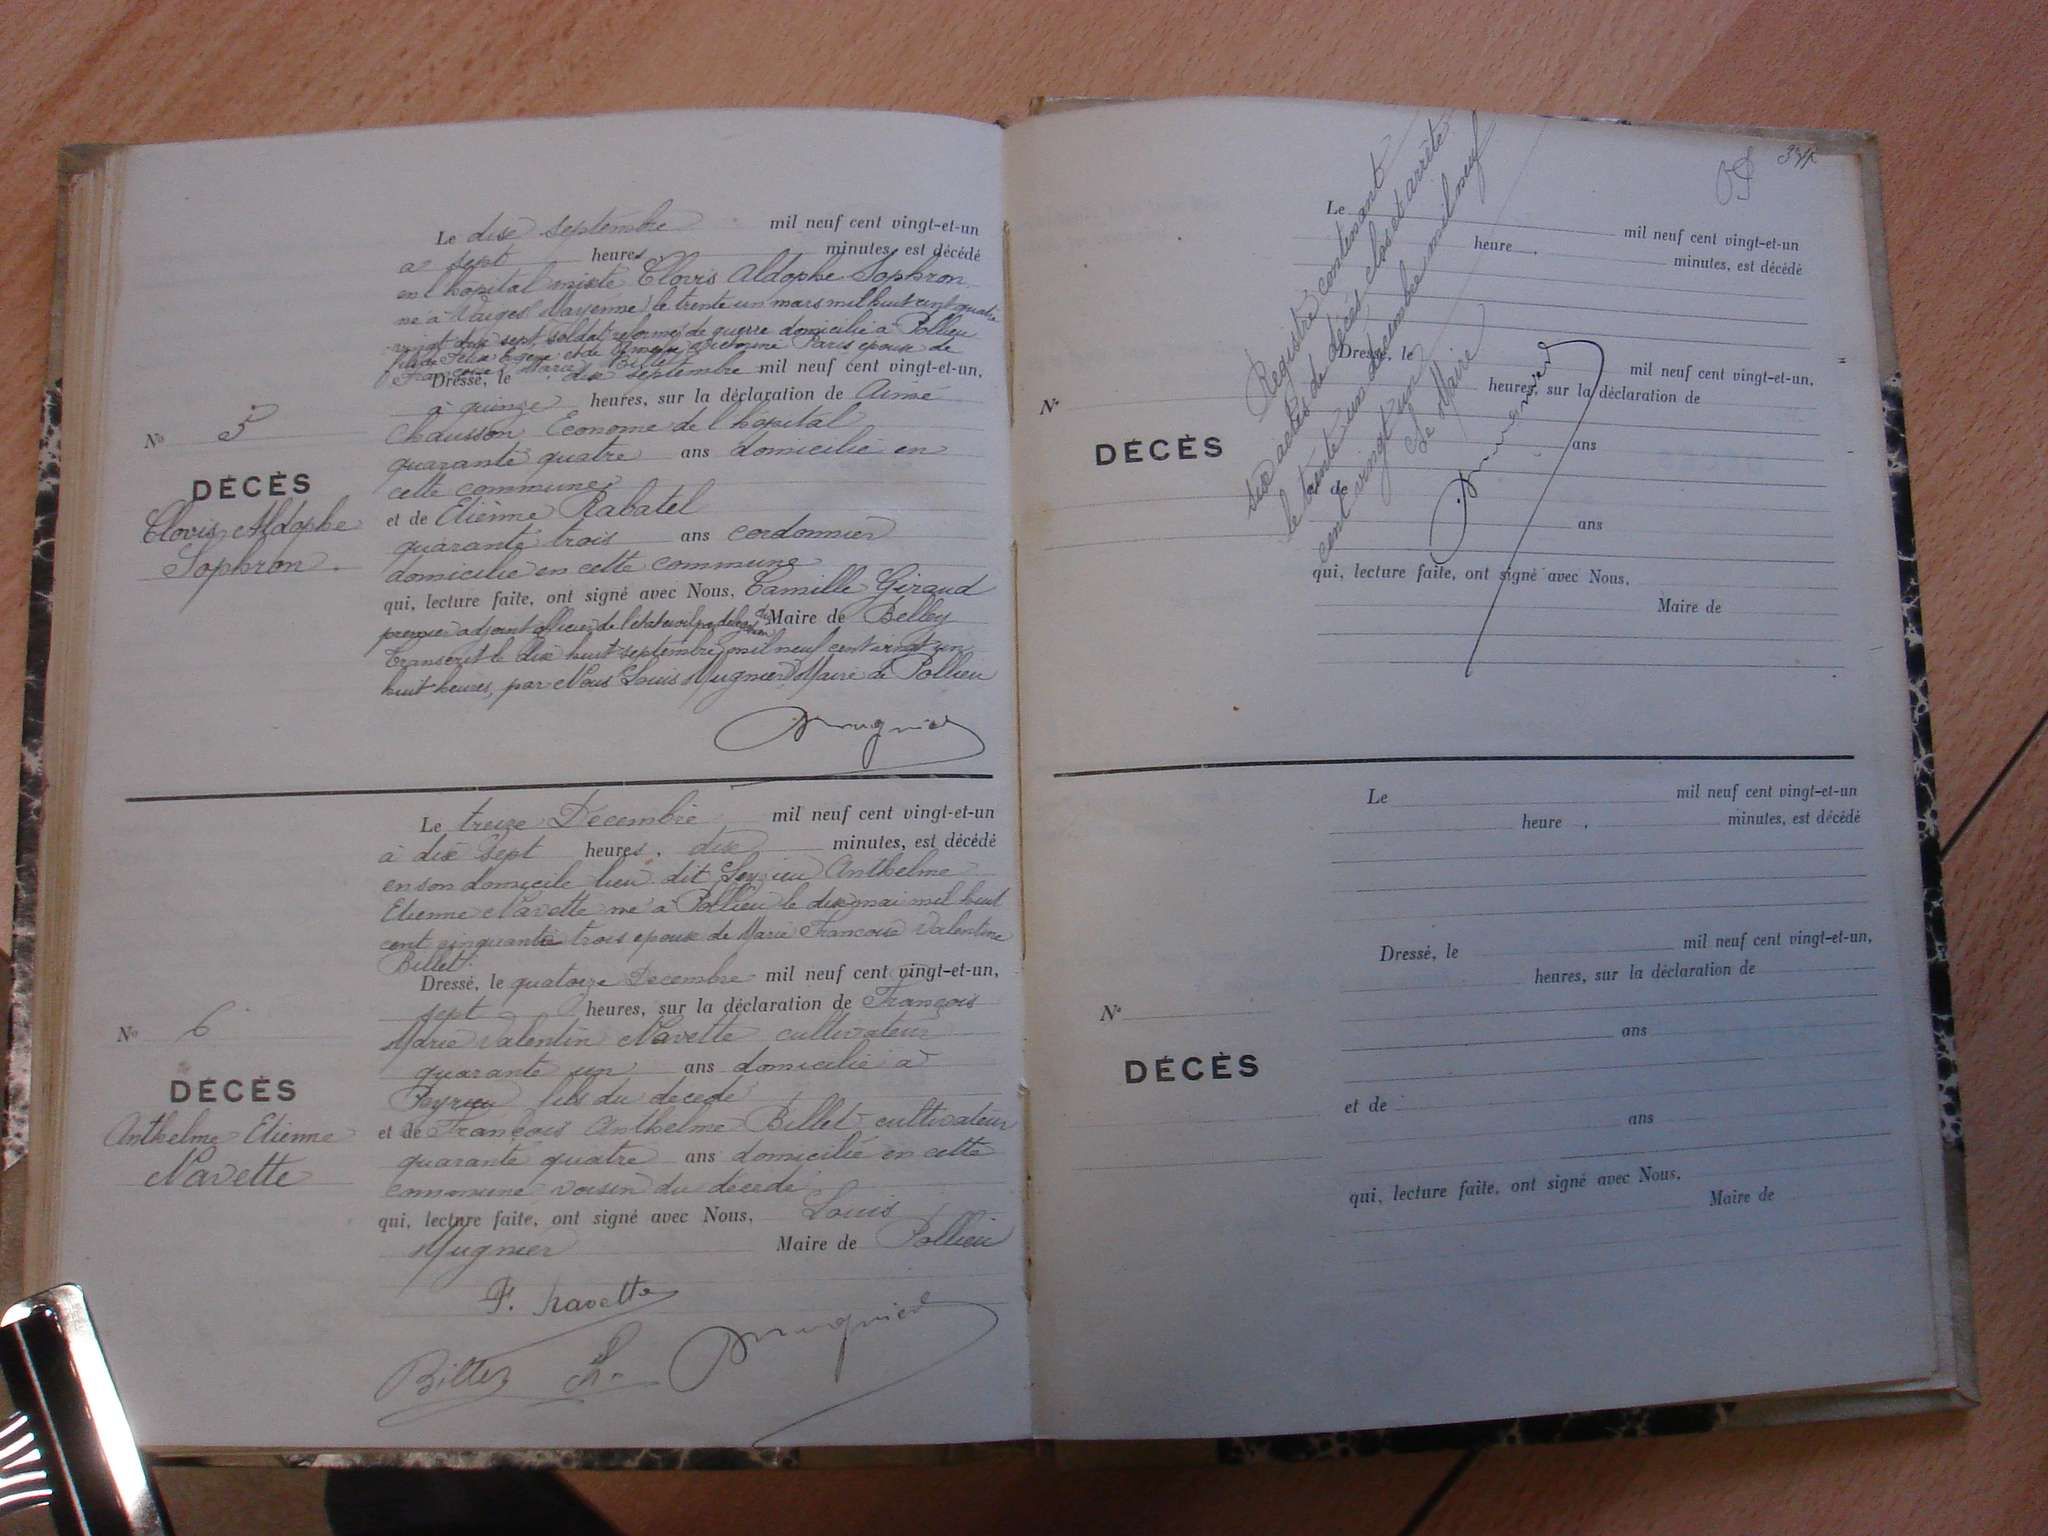 Le dix septembre mil neuf cent vingt-et-un
à sept heures minutes, est décédé
en l'hopital mixte Clovis Aldophe Sophron
né à Vaiges (Mayenne) le trente un mars mil huit cent quatre
vingt dix sept, soldat reformé de guerre domicilié à Pollieu
fils de Felix et de Paris epoux de
Françoise Marie Billet
Dressé, le dix septembre mil neuf cent vingt-et-un,
à quinze heures, sur la déclaration de Aimé
Chausson Econome de l'hopital
quarante quatre ans domicilié en
cette commune
et de Etienne Rabatel
quarante trois ans cordonnier
domicilié en cette commune
qui, lecture faite, ont signé avec Nous, Camille Giraud
premier adjoint officier de l'etat civil par delegation du Maire de Belley
Transcrit le dix huit septembre mil neuf cent vingt un
huit heures, par Nous Louis Mugnier Maire de Pollieu
Mugnier
No 5
DÉCÈS
Clovis Aldophe
Sophron.
Le treize Decembre mil neuf cent vingt-et-un
à dix sept heures, dix minutes, est décédé
en son domicile lieu dit Anthelme
Etienne Navette né à Pollieu le dix mai mil huit
cent cinquante trois epoux de Marie Francoise Valentine
Billet.
Dressé, le quatorze Decembre mil neuf cent vingt-et-un,
sept heures, sur la déclaration de François
Marie Valentin Navette cultivateur
quarante un ans domicilié à
Peyrieu fils du decedé
et de François Anthelme Billet cultivateur
quarante quatre ans domicilié en cette
commune voisin du decedé
qui, lecture faite, ont signé avec Nous, Louis
Mugnier Maire de Pollieu
No 6
DÉCÈS
Anthelme Etienne
Navette
F. Navette
Billet
Mugnier
Registre contenant
six actes de décés clos et arrêté
le trente un decembre mil neuf
cent vingt un
Le Maire
Mugnier
Le mil neuf cent vingt-et-un
heure , minutes, est décédé
Dressé, le mil neuf cent vingt-et-un,
heures, sur la déclaration de
No
DÉCÈS
ans
et de
ans
qui, lecture faite, ont signé avec Nous,
Maire de
Le mil neuf cent vingt-et-un
heure , minutes, est décédé
Dressé, le mil neuf cent vingt-et-un,
heures, sur la déclaration de
No
DÉCÈS
ans
et de
ans
qui, lecture faite, ont signé avec Nous,
Maire de